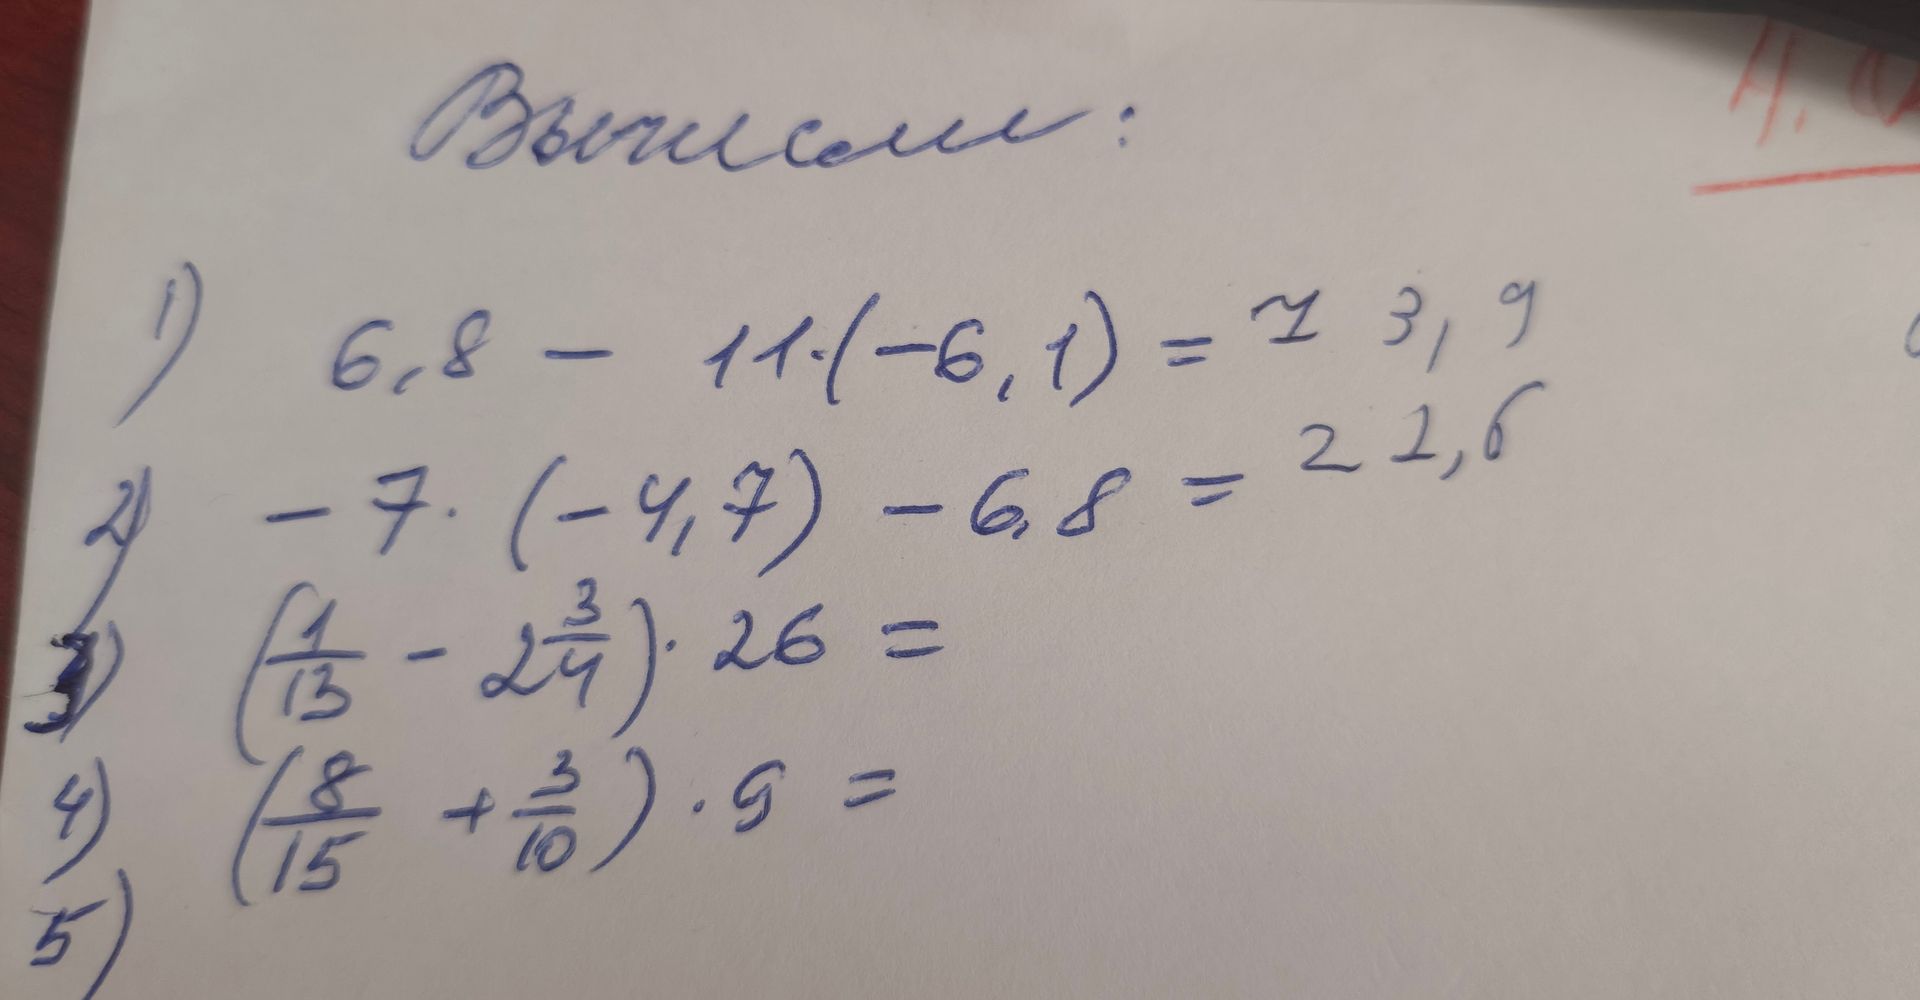 Вычисли:
1) 6,8 - 11·(-6,1) = 7 3,9
2) -7·(-4,7) - 6,8 = 2 2,6
3) (1/13 - 2 3/4)·26 =
4) (8/15 + 3/10)·9 =
5)